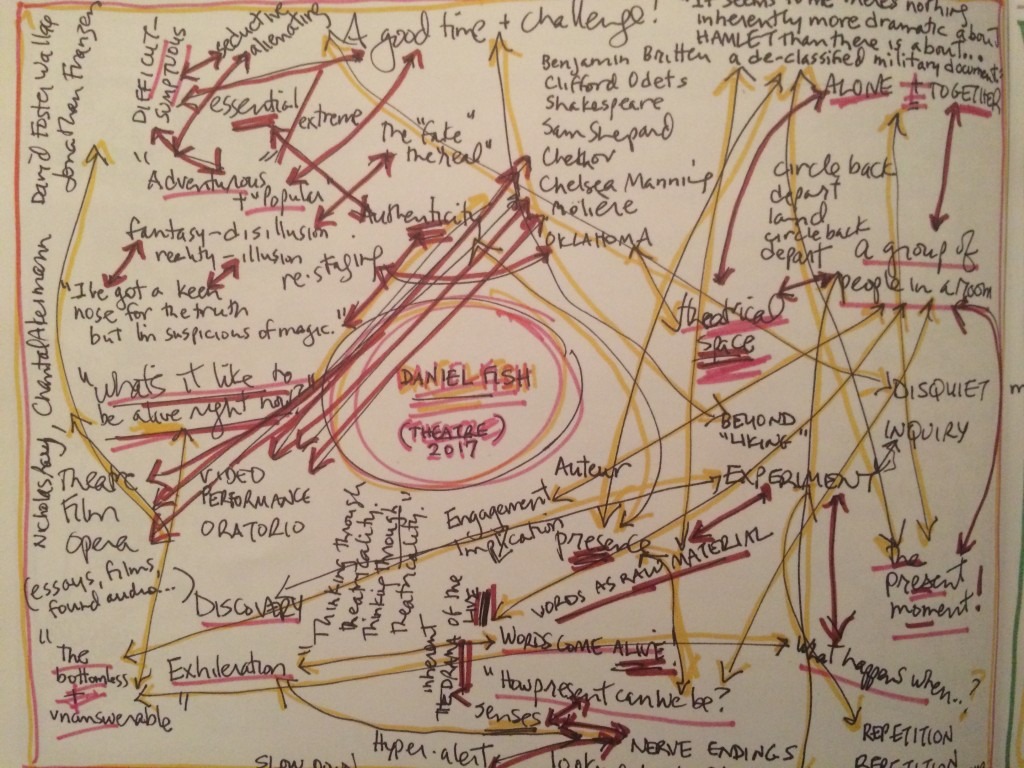 A good time + challenge!
"It seems to me there's nothing
inherently more dramatic about
HAMLET than there is about...
a de-classified military document"
David Foster Wallace
Jonathan Franzen
DIFFICULT-
SUMPTUOUS
seductive
alienating
essential
extreme
Benjamin Britten
Clifford Odets
Shakespeare
Sam Shepard
Chekhov
Chelsea Manning
Molière
OKLAHOMA
ALONE + TOGETHER
The "fake"
"the real"
"Adventurous"
+ "popular"
Authenticity
circle back
depart
land
circle back
depart
a group of
people in a room
fantasy-disillusion
reality-illusion
re-staging
"I've got a keen
nose for the truth
but I'm suspicious of magic."
theatrical
space
Nicholas Ray, Chantal Akermann
"What's it like to
be alive right now?"
DANIEL FISH
(THEATRE)
2017
DISQUIET
INQUIRY
BEYOND
"LIKING"
Theatre
Film
Opera
(essays, films,
found audio...)
VIDEO
PERFORMANCE
ORATORIO
Auteur
EXPERIMENT
Engagement
Implication
presence
WORDS AS RAW MATERIAL
"Thinking through
theatricality,
Thinking through
theatricality."
The
present
moment!
DISCOVERY
inherent
THE DRAMA of the
LIVE
WORDS COME ALIVE
What happens when...?
"The
bottomless
+
unanswerable"
Exhileration
"How present can we be?
senses
Hyper-alert
NERVE ENDINGS
REPETITION
REPETITION
SLOW DOWN